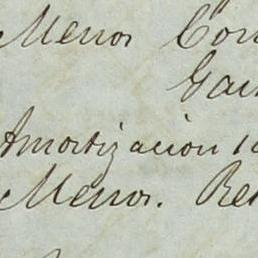 Menos Con
Gas
Amortizacion 1
Menos. Re